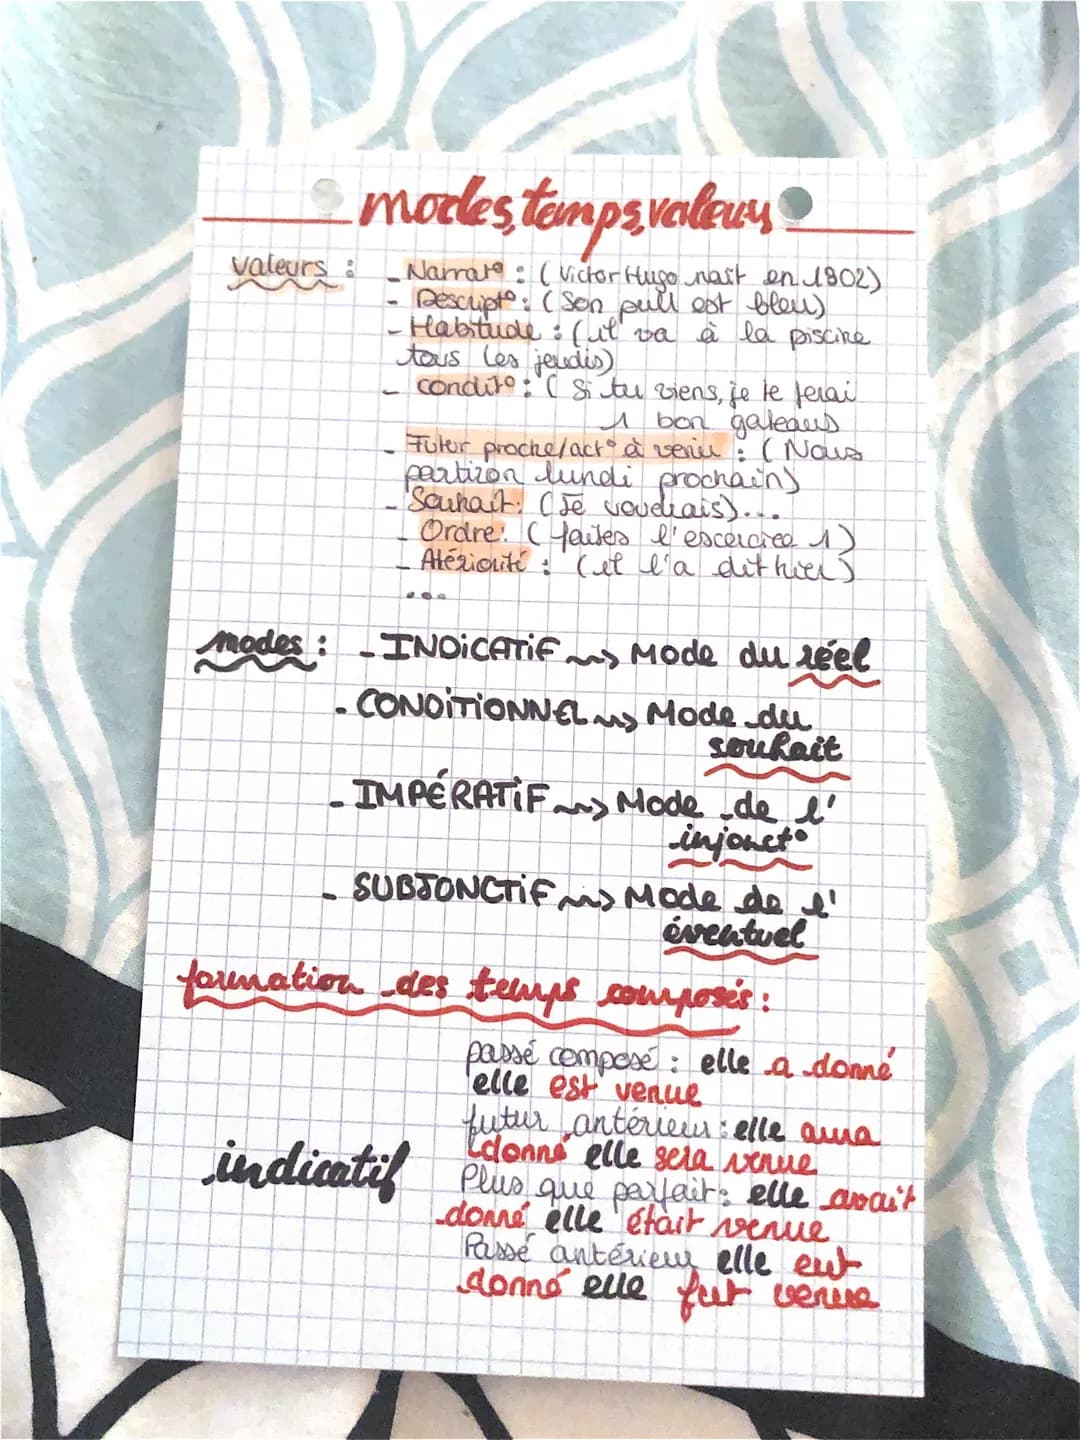 modes, temps, valeurs
valeurs : - Narrat° : (Victor Hugo naît en 1802)
- Descript° : (Son pull est bleu)
- Habitude : (il va à la piscine
tous les jeudis)
- condit° : (Si tu viens, je te ferai
1 bon gateaus
- Futur proche/act° à venir : (Nous
partiron lundi prochain)
- Souhait : (Je voudrais)...
- Ordre : (faites l'escercice 1)
- Atériorité : (il l'a dit hier)
...
modes : - INDiCATiF ~> Mode du réel
- CONDiTiONNEL ~> Mode du
souhait
- IMPÉRATiF ~> Mode de l'
injonct°
- SUBJONCTiF ~> Mode de l'
éventuel
formation des temps composés :
passé composé : elle a donné
elle est venue
futur antérieur : elle aura
donné elle sera venue
indicatif
Plus que parfait : elle avait
donné elle était venue
Passé antérieur elle eut
donné elle fut venue